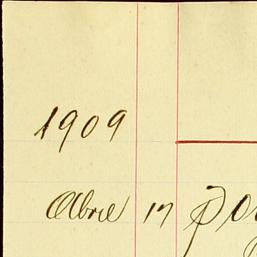 1909
Abril 17 po